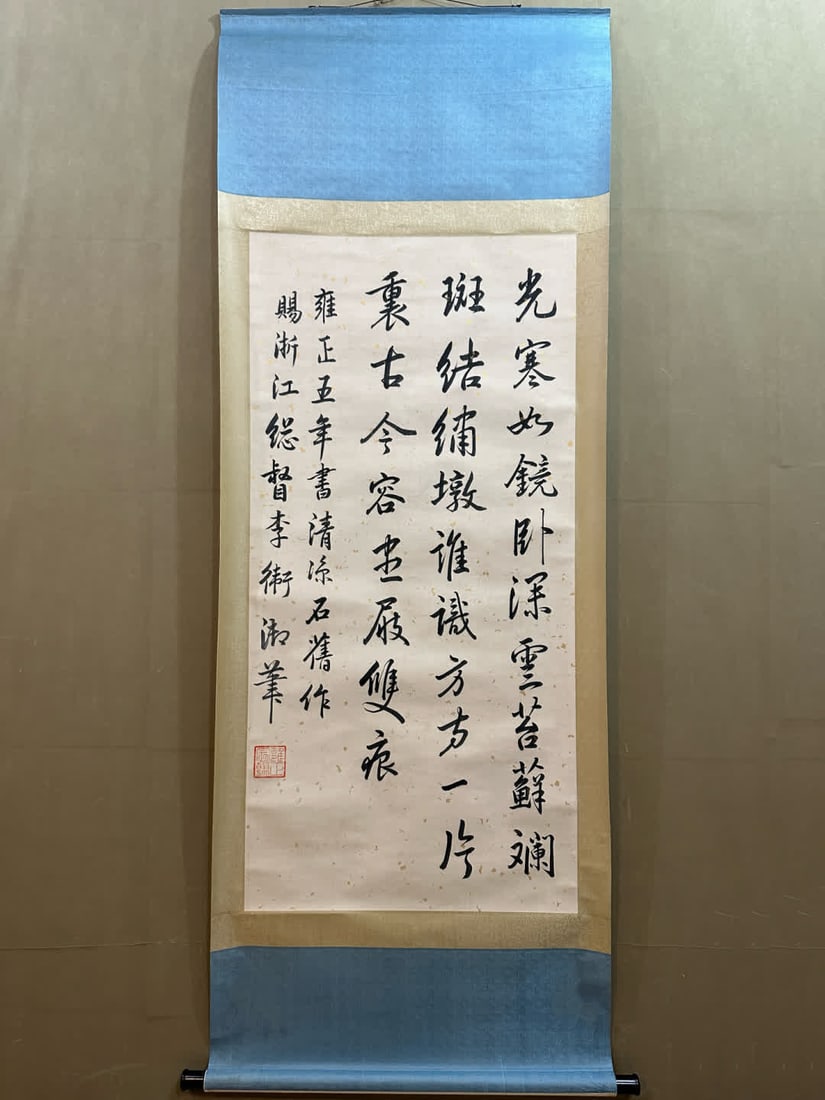 光寒如鏡卧深雲苔蘚斕
斑結繡墩誰識方方一片
裏古今容盡屐雙痕
雍正五年書清涼石舊作
賜浙江總督李衛御筆